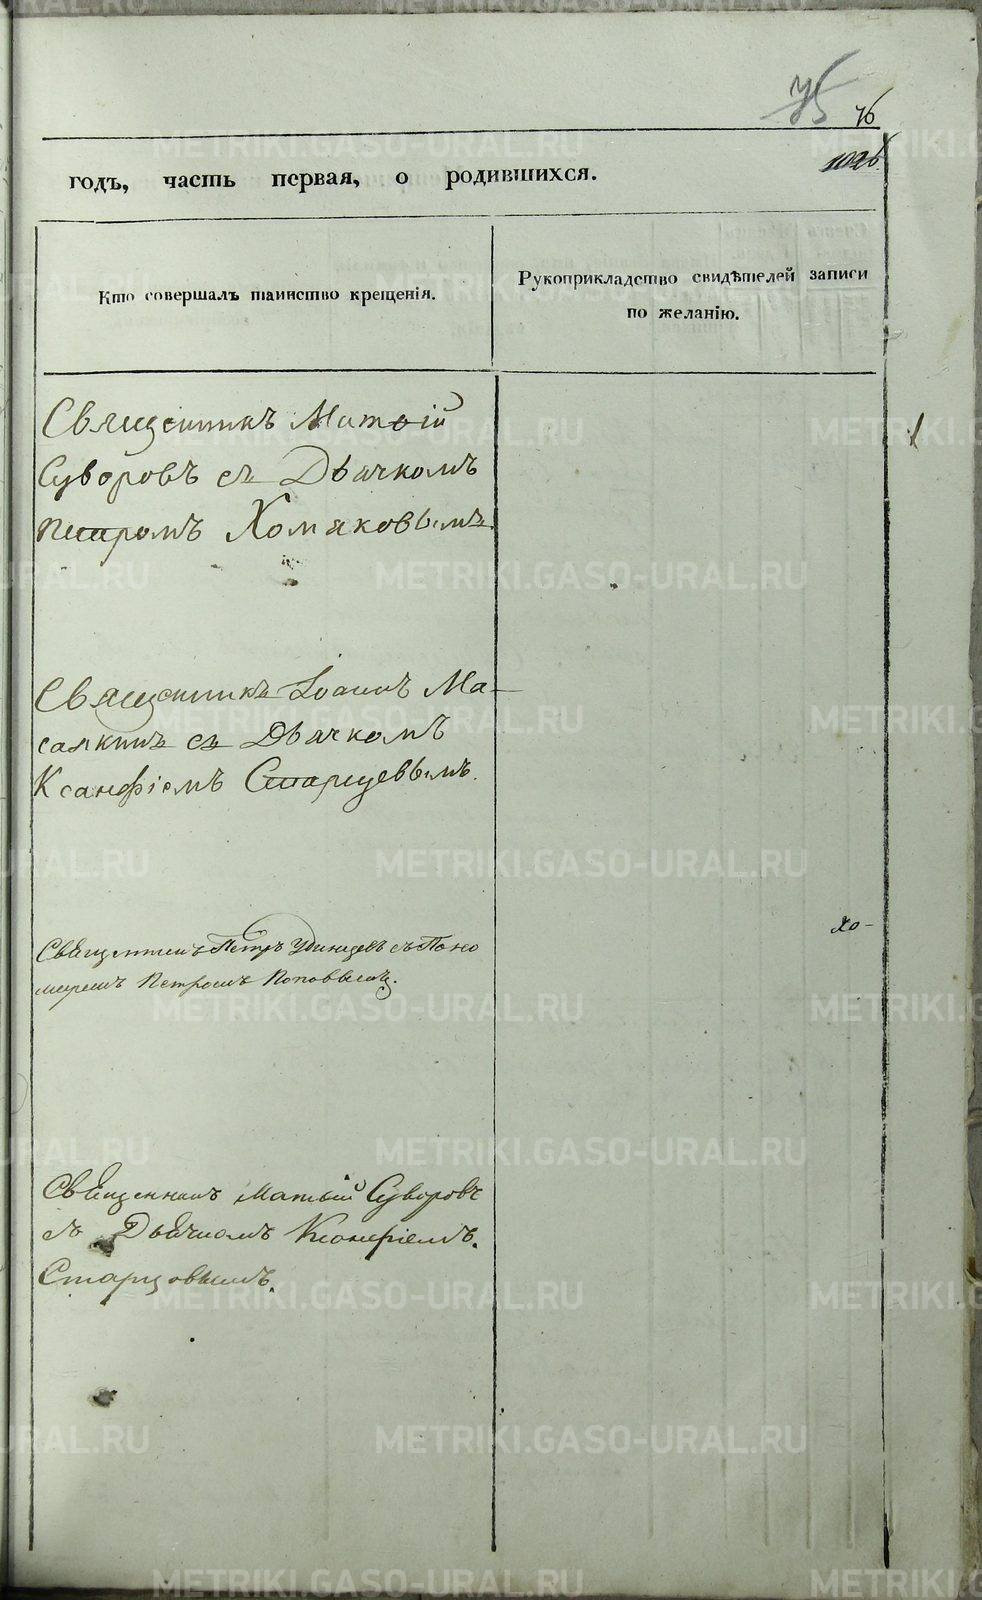 75
76
1026
годъ, часть первая, о родившихся.
Кто совершалъ таинство крещенія.
Рукоприкладство свидѣтелей записи
по желанію.
Священникъ Матѳій
Суворовъ съ Дьячкомъ
Петромъ Хомяковымъ.
Священникъ Іоаннъ Ма-
салкинъ съ Дьячкомъ
Ксанфіемъ Старцевымъ.
хо-
Священникъ Петръ Удинцевъ съ Поно
маремъ Петромъ Поповымъ.
Священникъ Матвій Суворовъ
съ Дьячкомъ Ксанфіемъ.
Старцовымъ.
METRIKI.GASO-URAL.RU